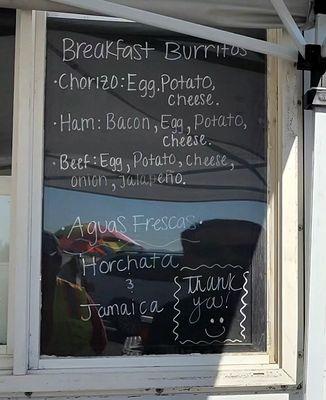 Breakfast Burritos
· Chorizo: Egg, Potato,
cheese.
· Ham: Bacon, Egg, Potato,
cheese.
· Beef: Egg, Potato, cheese,
onion, jalapeño.
· Aguas Frescas ·
Horchata
&
Jamaica
Thank
ya!